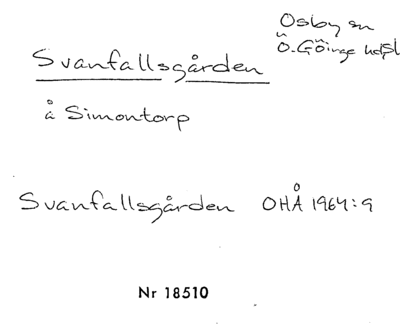 Osby sn
Ö. Göinge hd, Sk
Svanfallsgården
å Simontorp
Svanfallsgården OHÅ 1964:9
Nr 18510